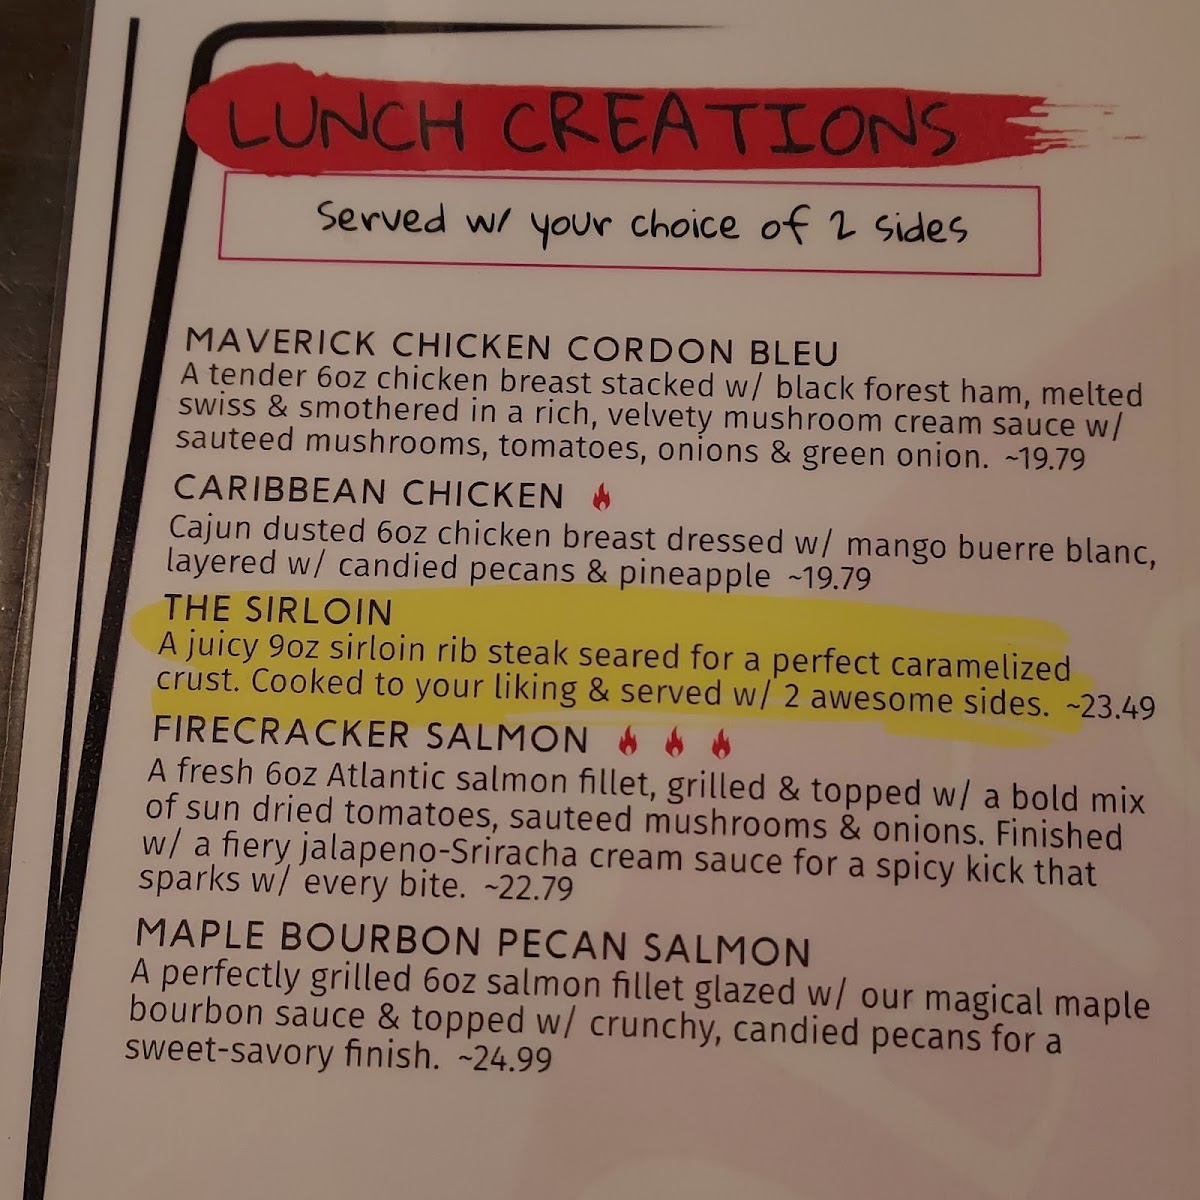 LUNCH CREATIONS
Served w/ your choice of 2 sides
MAVERICK CHICKEN CORDON BLEU
A tender 6oz chicken breast stacked w/ black forest ham, melted
swiss & smothered in a rich, velvety mushroom cream sauce w/
sauteed mushrooms, tomatoes, onions & green onion. ~19.79
CARIBBEAN CHICKEN
Cajun dusted 6oz chicken breast dressed w/ mango buerre blanc,
layered w/ candied pecans & pineapple ~19.79
THE SIRLOIN
A juicy 9oz sirloin rib steak seared for a perfect caramelized
crust. Cooked to your liking & served w/ 2 awesome sides. ~23.49
FIRECRACKER SALMON
A fresh 6oz Atlantic salmon fillet, grilled & topped w/ a bold mix
of sun dried tomatoes, sauteed mushrooms & onions. Finished
w/ a fiery jalapeno-Sriracha cream sauce for a spicy kick that
sparks w/ every bite. ~22.79
MAPLE BOURBON PECAN SALMON
A perfectly grilled 6oz salmon fillet glazed w/ our magical maple
bourbon sauce & topped w/ crunchy, candied pecans for a
sweet-savory finish. ~24.99